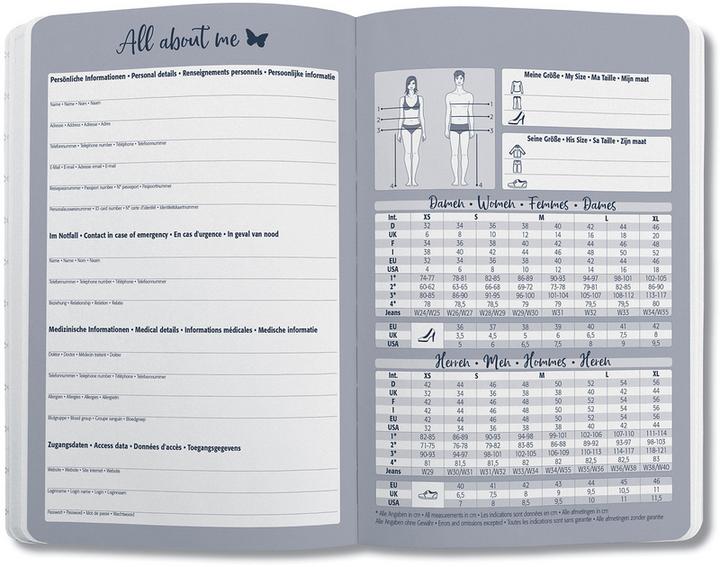 All about me
Persönliche Informationen • Personal details • Renseignements personnels • Persoonlijke informatie
Name • Name • Nom • Naam
Adresse • Address • Adresse • Adres
Telefonnummer • Telephone number • Téléphone • Telefoonnummer
E-Mail • E-mail • Adresse email • E-mail
Reisepassnummer • Passport number • N° passeport • Paspoortnummer
Personalausweisnummer • ID card number • N° carte d'identité • Identiteitskaartnummer
Im Notfall • Contact in case of emergency • En cas d'urgence • In geval van nood
Name • Name • Nom • Naam
Telefonnummer • Telephone number • Téléphone • Telefoonnummer
Beziehung • Relationship • Relation • Relatie
Medizinische Informationen • Medical details • Informations médicales • Medische informatie
Doktor • Doctor • Médecin traitant • Dokter
Telefonnummer • Telephone number • Téléphone • Telefoonnummer
Allergien • Allergies • Allergies • Allergieën
Blutgruppe • Blood group • Groupe sanguin • Bloedgroep
Zugangsdaten • Access data • Données d'accès • Toegangsgegevens
Website • Website • Site internet • Website
Loginname • Login name • Login • Loginnaam
Passwort • Password • Mot de passe • Wachtwoord
1
2
3
4
1
2
3
4
Meine Größe • My Size • Ma Taille • Mijn maat
Seine Größe • His Size • Sa Taille • Zijn maat
Damen • Women • Femmes • Dames
Int. XS S M L XL
D 32 34 36 38 40 42 44 46
UK 6 8 10 12 14 16 18 20
F 34 36 38 40 42 44 46 48
I 38 40 42 44 46 48 50 52
EU 32 34 36 38 40 42 44 46
USA 4 6 8 10 12 14 16 18
1* 74-77 78-81 82-85 86-89 90-93 94-97 98-101 102-105
2* 60-62 63-65 66-68 69-72 73-78 79-81 81-85 86-90
3* 80-85 86-90 91-95 96-100 101-104 105-107 108-112 113-117
4* 78 78,5 78,5 79 79 79,5 79,5 80
Jeans W24/W25 W26/W27 W28/W29 W29/W30 W31 W32 W33 W34/W35
EU 36 37 38 39 40 41 42
UK 3,5 4,5 5 6 6,5 7,5 8
USA 5 6 6,5 7,5 8 9 9,5
Herren • Men • Hommes • Heren
Int. XS S M L XL
D 42 44 46 48 50 52 54 56
UK 32 34 36 38 40 42 44 46
F 42 44 46 48 50 52 54 56
I 42 44 46 48 50 52 54 56
EU 42 44 46 48 50 52 54 56
USA 32 34 36 38 40 42 44
1* 82-85 86-89 90-93 94-98 99-101 102-106 107-110 111-114
2* 71-75 76-78 79-82 83-85 86-88 89-92 93-97 98-103
3* 90-93 94-97 98-101 102-105 106-109 110-113 114-117 118-121
4* 81 81,5 81,5 82 82 82,5 82,5 83
Jeans W29 W30/W31 W31/W32 W33/W34 W34/W35 W35/W36 W36/W38 W38/W40
EU 40 41 42 43 44 45 46
UK 6,5 7,5 8 9 9,5 10,5 11
USA 7 8 8,5 9,5 10 11 11,5
* Alle Angaben in cm • All measurements in cm • Les indications sont données en cm • Alle afmetingen in cm
Alle Angaben ohne Gewähr • Errors and omissions excepted • Toutes les indications sont sans garantie • Alle afmetingen zonder garantie